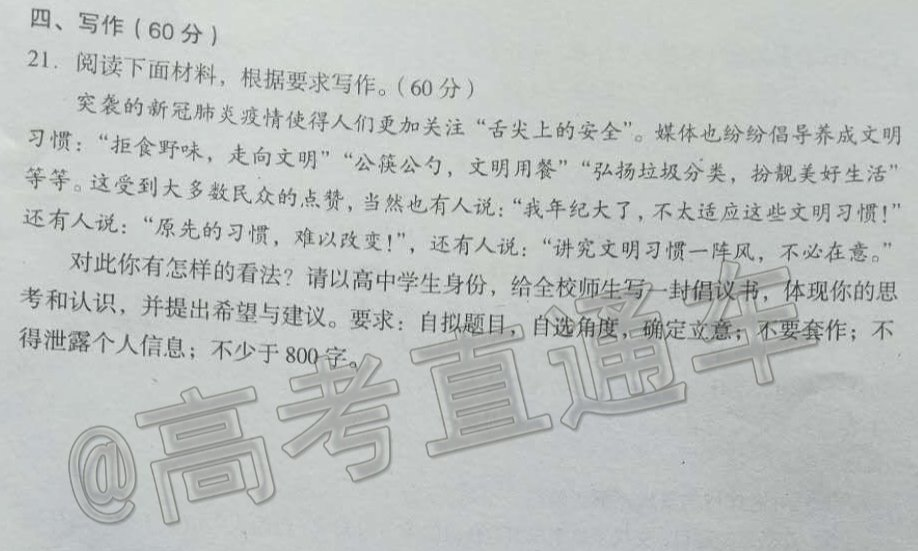 四、写作（60分）
21. 阅读下面材料，根据要求写作。（60分）
突袭的新冠肺炎疫情使得人们更加关注“舌尖上的安全”。媒体也纷纷倡导养成文明
习惯：“拒食野味，走向文明”“公筷公勺，文明用餐”“弘扬垃圾分类，扮靓美好生活”
等等。这受到大多数民众的点赞，当然也有人说：“我年纪大了，不太适应这些文明习惯！”
还有人说：“原先的习惯，难以改变！”，还有人说：“讲究文明习惯一阵风，不必在意。”
对此你有怎样的看法？请以高中学生身份，给全校师生写一封倡议书，体现你的思
考和认识，并提出希望与建议。要求：自拟题目，自选角度，确定立意；不要套作；不
得泄露个人信息；不少于800字。
@高考直通车